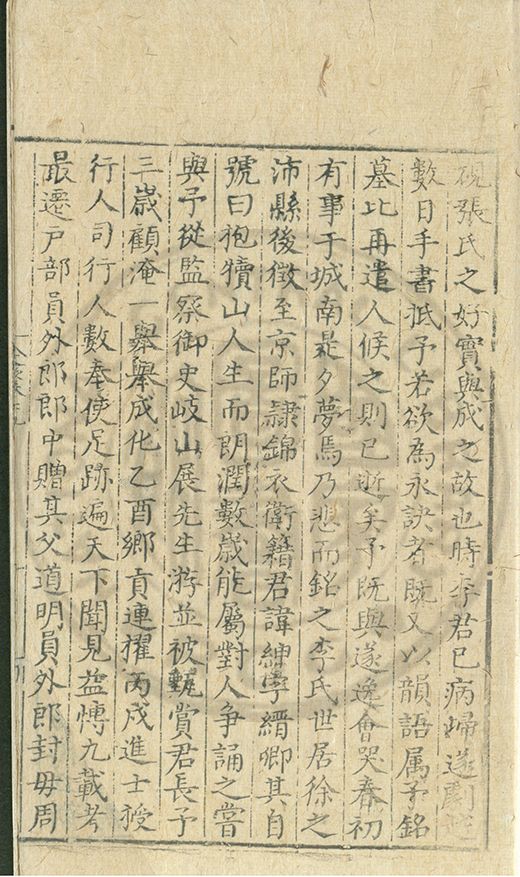 張氏之好實與成之故也時李君已病歸遂劇
數日手書抵予若欲為永訣者既又以韻語属予銘
墓比再遣人候之則已逝矣予既與遂逸會哭春初
有事于城南是夕夢焉乃悲而銘之李氏世居徐之
沛縣後徵至京師隷錦衣衛籍君諱紳字縉卿其自
號曰抱犢山人生而朗潤數歲能屬對人争誦之嘗
與予從監察御史岐山展先生游並被甄賞君長予
三歲顧淹一舉舉成化乙酉鄉貢連擢丙戍進士授
行人司行人數奉使足跡遍天下聞見益愽九載考
最遷户部員外郎郎中贈其父道明員外郎封毋周